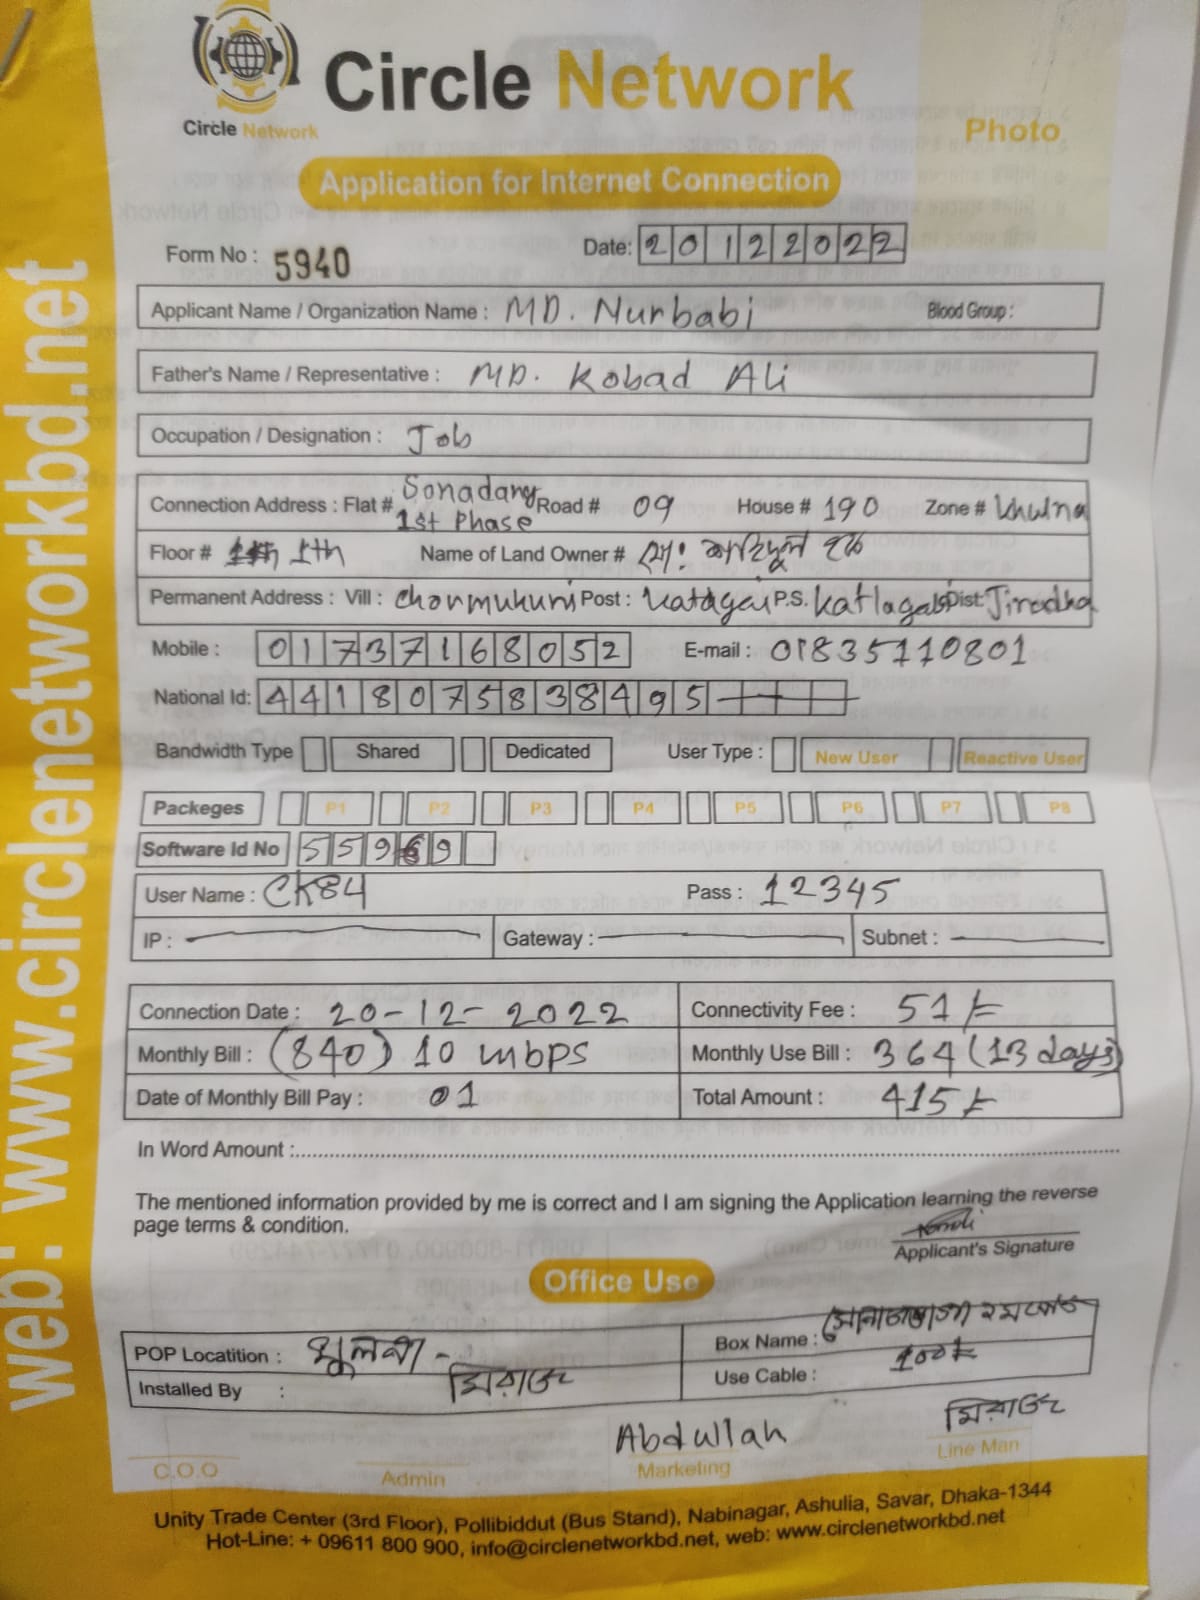 Circle Network
Circle Network
Photo
Application for Internet Connection
Form No : 5940 Date: 20122022
Applicant Name / Organization Name : MD. Nurbabi Blood Group :
Father's Name / Representative : MD. Kobad Ali
Occupation / Designation : Job
Connection Address : Flat # Sonadang 1st Phase Road # 09 House # 190 Zone # Khulna
Floor # 1th Name of Land Owner # মো:
Permanent Address : Vill : Chormukuni Post : P.S. Dist:
Mobile : 01737168052 E-mail : 01835110801
National Id: 4418075838495
Bandwidth Type Shared Dedicated User Type : New User Reactive User
Packeges P1 P2 P3 P4 P5 P6 P7 P8
Software Id No 55969
User Name : CK84 Pass : 12345
IP : Gateway : Subnet :
Connection Date : 20-12-2022 Connectivity Fee : 51/-
Monthly Bill : (840) 10 mbps Monthly Use Bill : 364 (13 days)
Date of Monthly Bill Pay : 01 Total Amount : 415/-
In Word Amount :
The mentioned information provided by me is correct and I am signing the Application learning the reverse
page terms & condition.
Applicant's Signature
Office Use
POP Locatition : খুলনা - Box Name :
Installed By : মিরাজ Use Cable :
Abdullah মিরাজ
C.O.O Admin Marketing Line Man
Unity Trade Center (3rd Floor), Pollibiddut (Bus Stand), Nabinagar, Ashulia, Savar, Dhaka-1344
Hot-Line: + 09611 800 900, info@circlenetworkbd.net, web: www.circlenetworkbd.net
web: www.circlenetworkbd.net